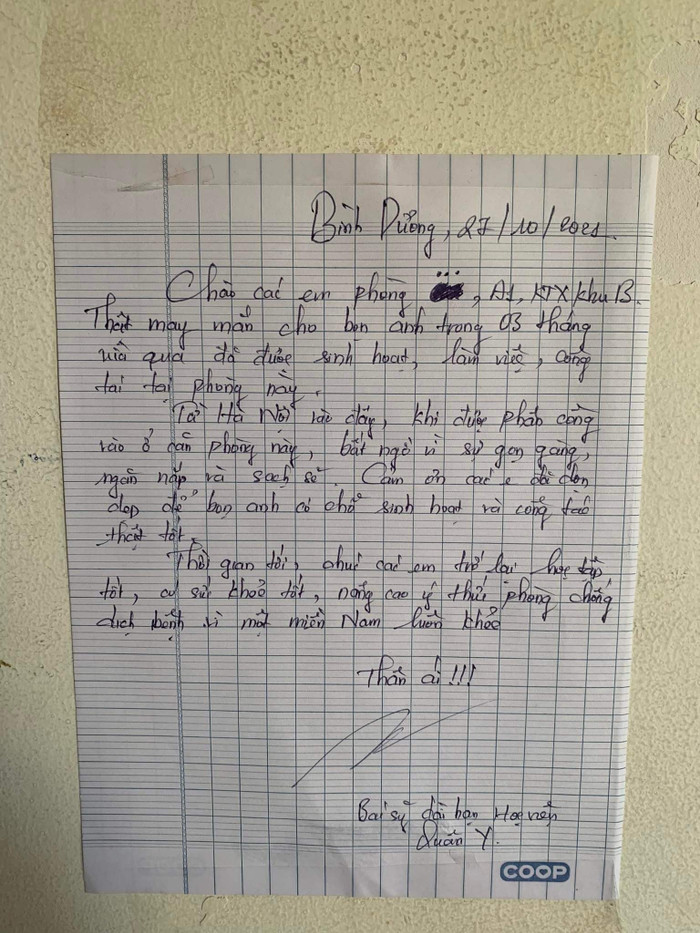 Bình Dương, 27/10/2021.
Chào các em phòng ..., A1, KTX khu B.
Thật may mắn cho bọn anh trong 03 tháng
vừa qua đã được sinh hoạt, làm việc, công
tác tại phòng này.
Từ Hà Nội vào đây, khi được phân công
vào ở căn phòng này, bất ngờ vì sự gọn gàng,
ngăn nắp và sạch sẽ. Cảm ơn các e đã dọn
dẹp để bọn anh có chỗ sinh hoạt và công tác
thật tốt.
Thời gian tới, chúc các em trở lại học tập
tốt, có sức khoẻ tốt, nâng cao ý thức phòng chống
dịch bệnh vì một miền Nam luôn khỏe
Thân ái!!!
Bác sỹ dài hạn Học viện
Quân Y.
COOP